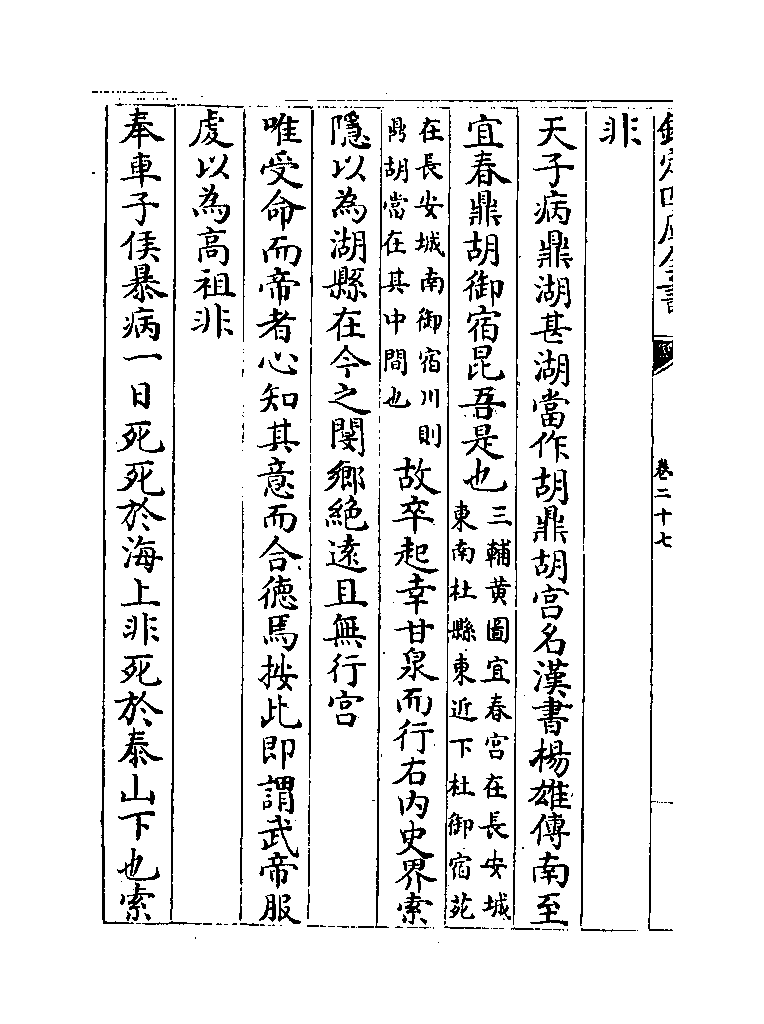 欽定四庫全書
卷二十七
非
天子病鼎湖甚湖當作胡鼎胡宮名漢書楊雄傳南至
宜春鼎胡御宿昆吾是也
三輔黄圖宜春宮在長安城
東南杜縣東近下杜御宿苑
在長安城南御宿川則
鼎胡當在其中間也
故卒起幸甘泉而行右内史界索
隱以為湖縣在今之閿鄉絶逺且無行宮
唯受命而帝者心知其意而合徳馬按此即謂武帝服
虔以為高祖非
奉車子侯暴病一日死死於海上非死於泰山下也索